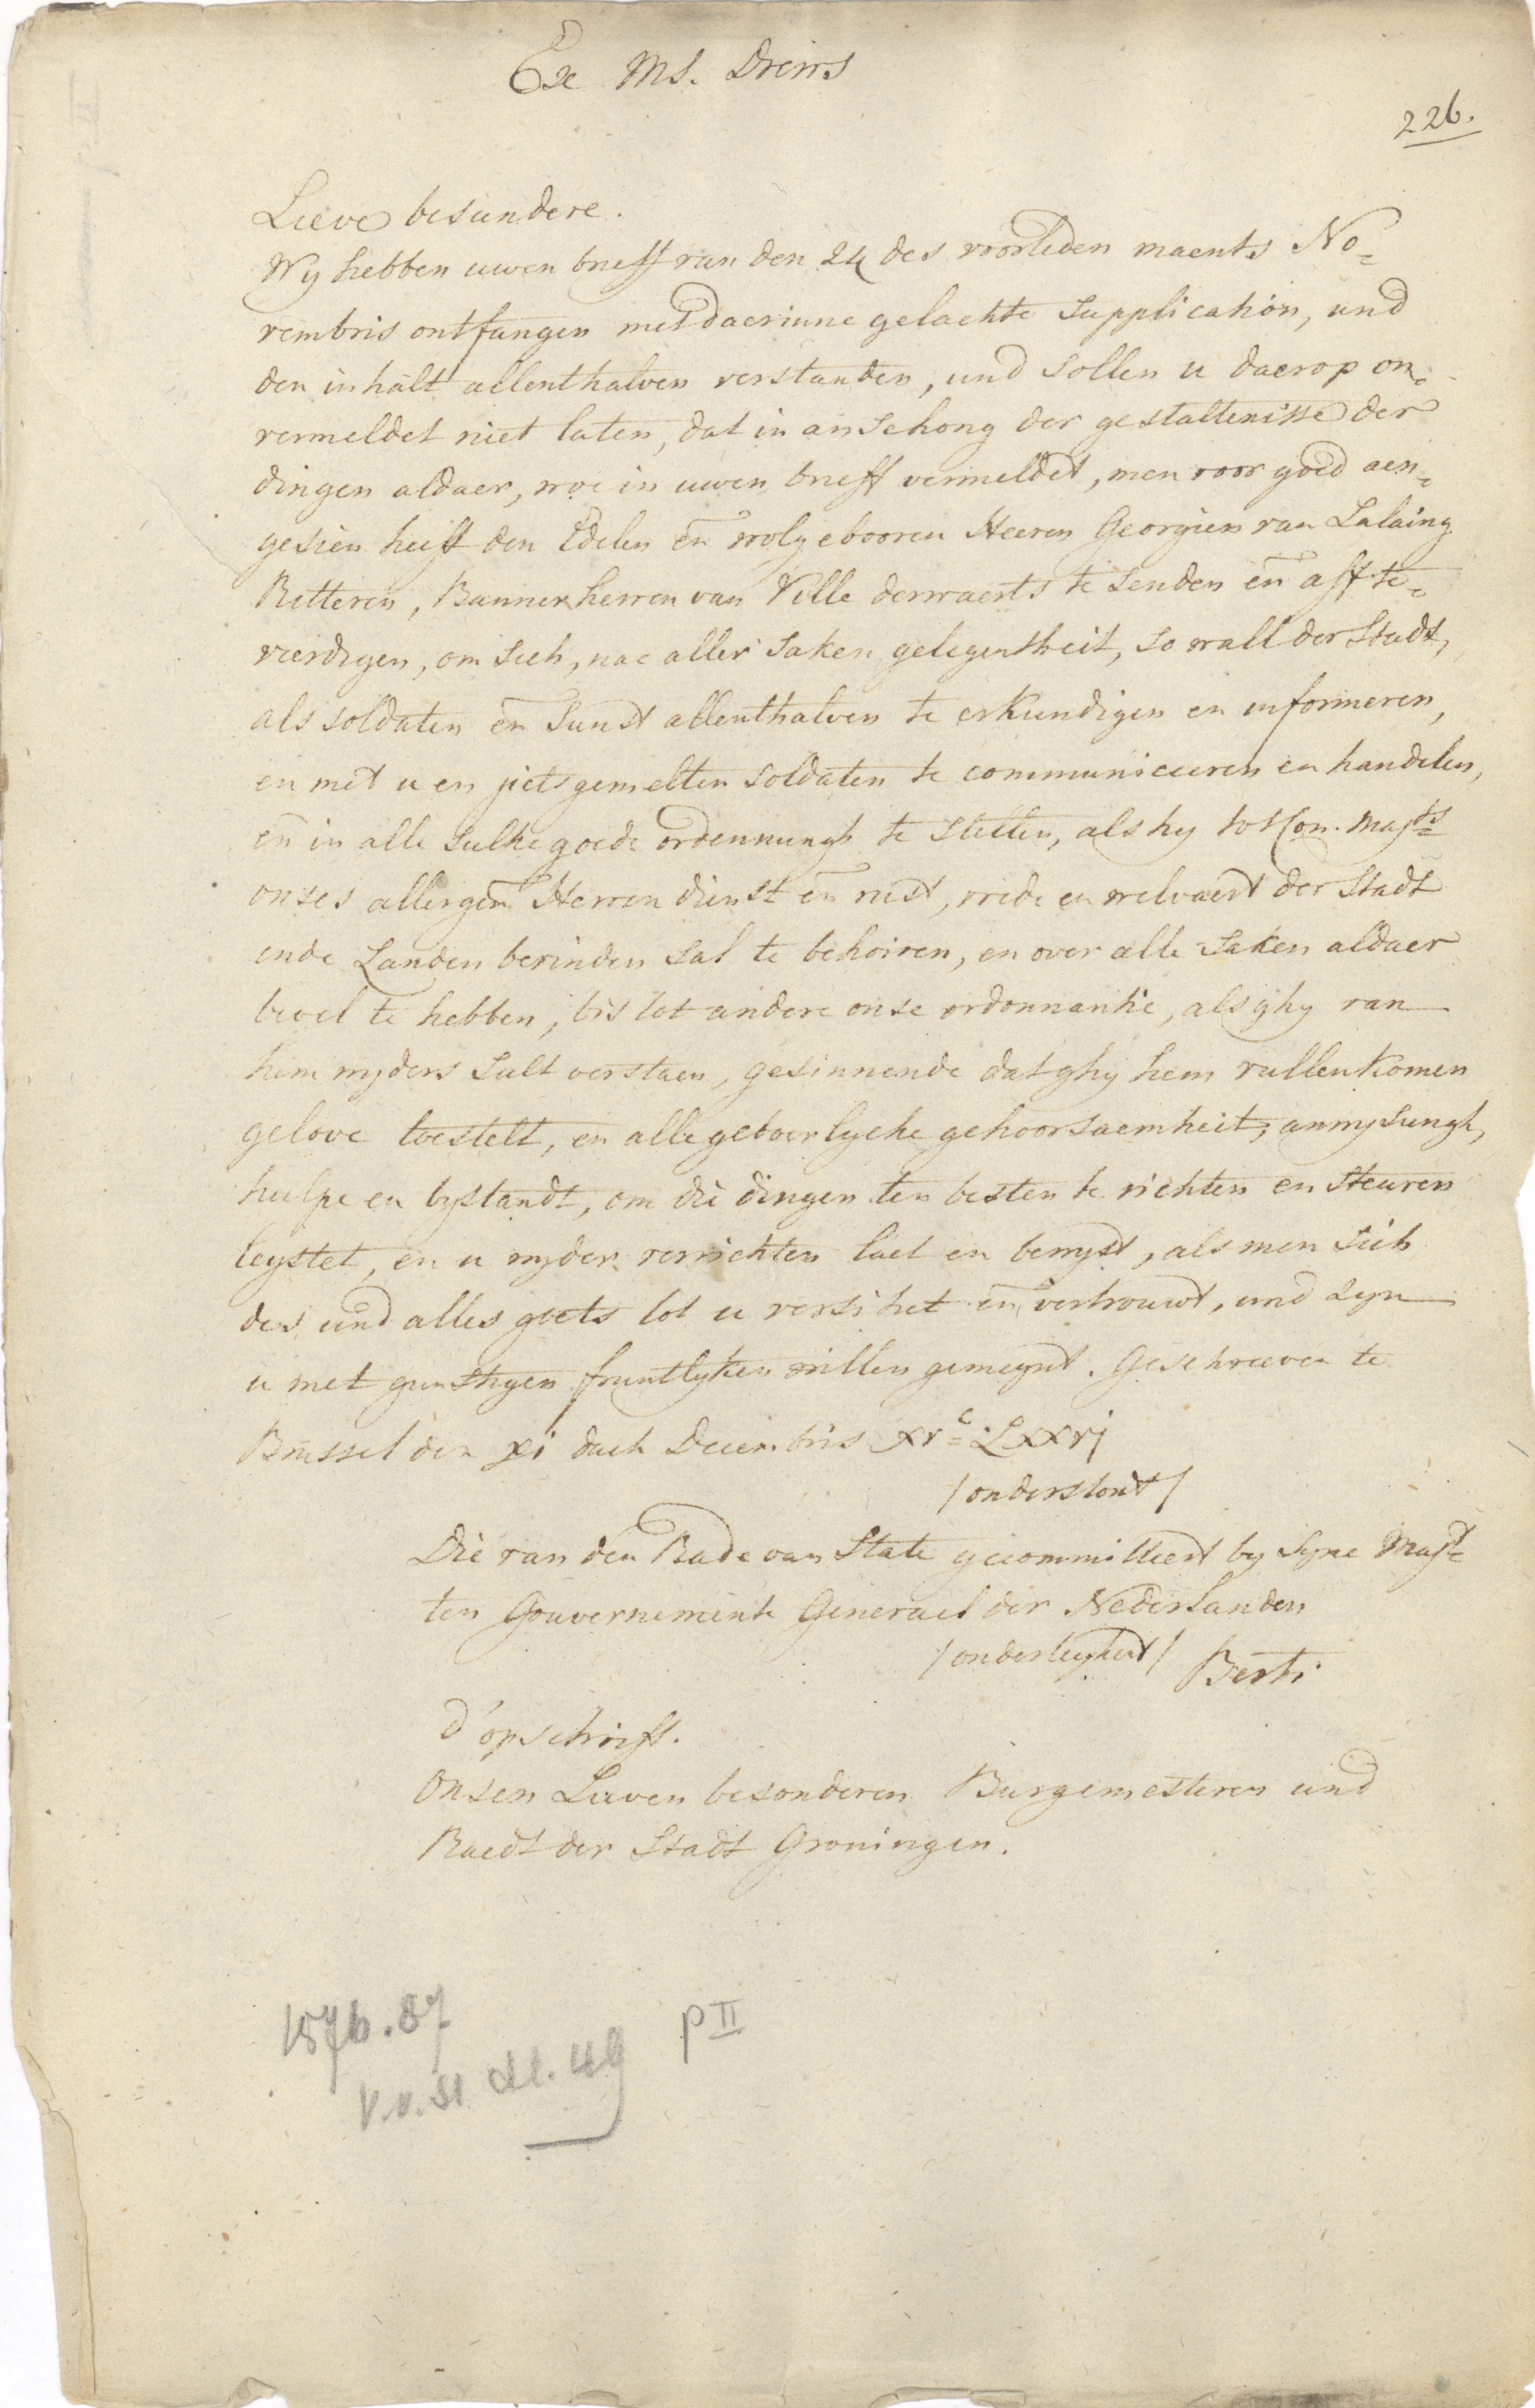 Ex Ms. Drews
226.
Lieve besundere.
Wy hebben uwen brieff van den 24 des voorleden maents No=
vembris ontfangen met daerinne gelachte supplication, und
den inhalt allenthalven verstanden, und sollen u daerop on=
vermeldet niet laten, dat in ansehong der gestaltenisse der
dingen aldaer, woe in uwen brieff vermeldet, men voor goed aen=
gesien heift den Edelen en̄ wolgebooren Heeren Georgien van Lalaing
Ritteren, Bannerherren van Ville derwaerts te senden en̄ aff te=
veerdigen, om sich, nae aller saken gelegentheit, so wall der Stadt,
als soldaten en̄ sunst allenthalven te erkundigen en informeren,
en met u en jietsgemelten soldaten te communiceeren en handelen,
en̄ in alle sulke goede ordennungh te stellen, als hy tot Con. Majts
onses allergen̄ Herren dienst en̄ rust, vrede en welvaert der Stadt
ende Landen bevinden sal te behoiren, en over alle saken aldaer
bevel te hebben, bis tot andere onse ordonnantie, als ghy van
hem wyders sult verstaen, gesinnende dat ghy hem vullenkomen
gelove toestelt, en alle geboerlycke gehoorsaemheit, anwysungh,
hulpe en bystandt, om die dingen ten besten te richten en steuren
leystet, en u wyder verrichten laet en bewyst, als men sich
des und alles goets tot u versihet en̄ vertrouwt, und zyn
u met gunstigen fruntlyken willen gemeynt. Geschreven te
Brussel den xi dach Decembris xvc Lxxvj
/onderstont/
Die van den Rade van State gecommitteert by Syne Majt
ten Gouvernemente Generael der Nederlanden
/onderteykent/ Berti
D'opschrift.
Onsen Lieven besonderen Burgemesteren und
Raedt der Stadt Groningen.
1576.87
p II
v.v. St dl. 49